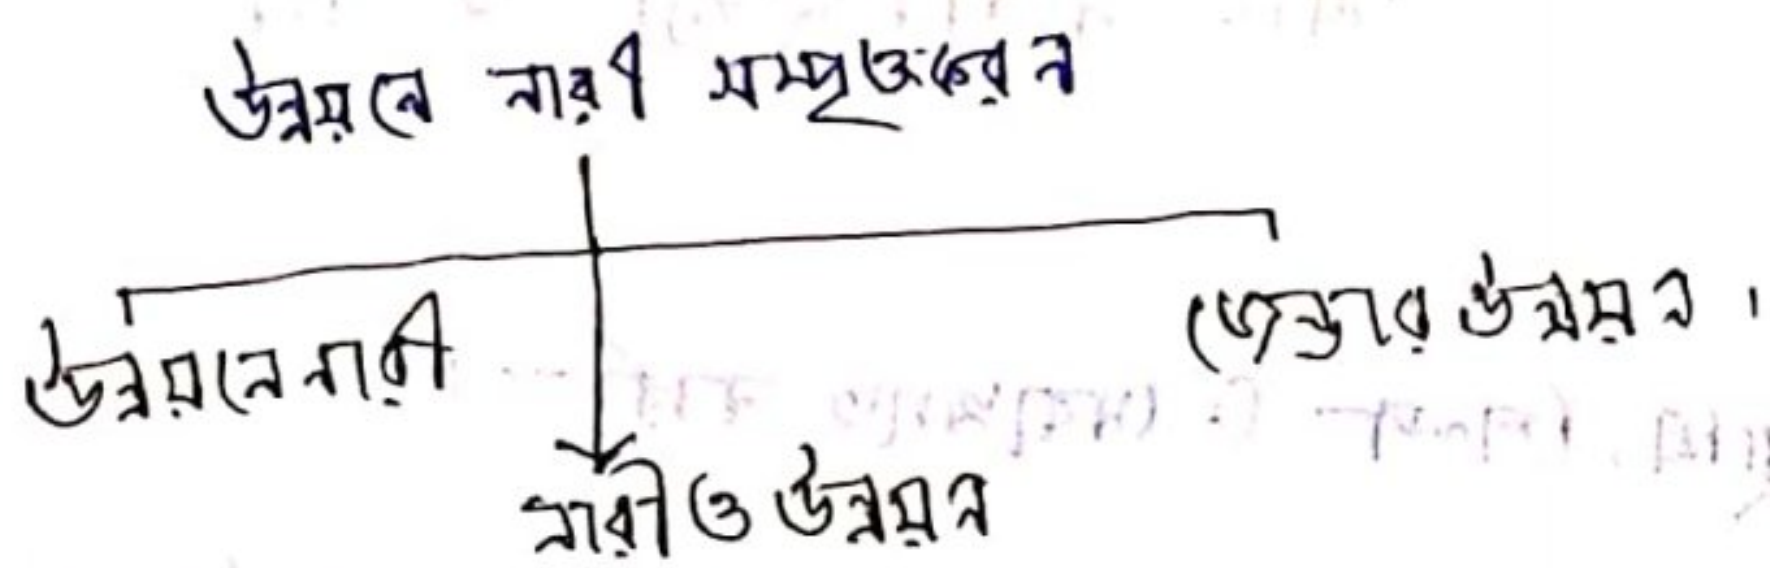 উন্নয়নে নারী সম্পৃক্তকরন
উন্নয়নে নারী
জেন্ডার উন্নয়ন।
নারী ও উন্নয়ন